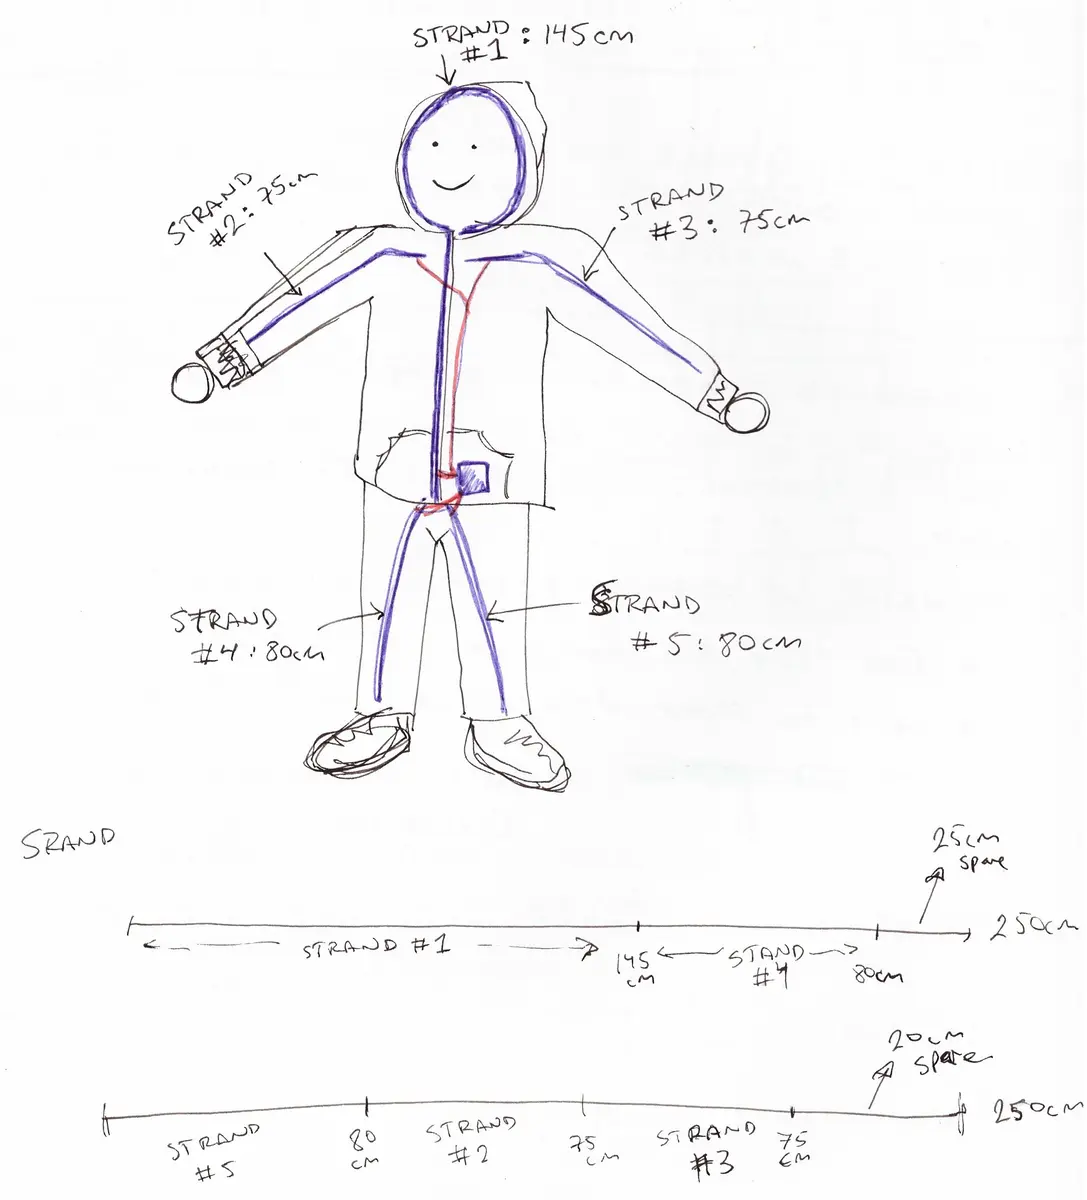 STRAND : 145cm
#1
STRAND
#2 : 75cm
STRAND
#3 : 75cm
STRAND
#4 : 80cm
STRAND
#5 : 80cm
SRAND
25cm
spare
STRAND #1
145
cm
STAND
#4
80cm
250cm
20cm
spare
STRAND
#5
80
cm
STRAND
#2
75
cm
STRAND
#3
75
cm
250cm